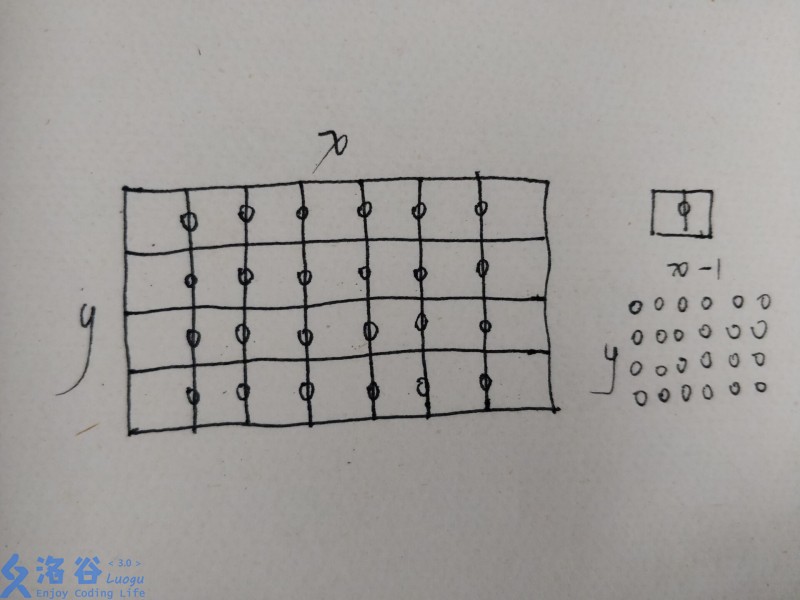 x
y
x-1
y
洛谷 <3.0>
Luogu
Enjoy Coding Life